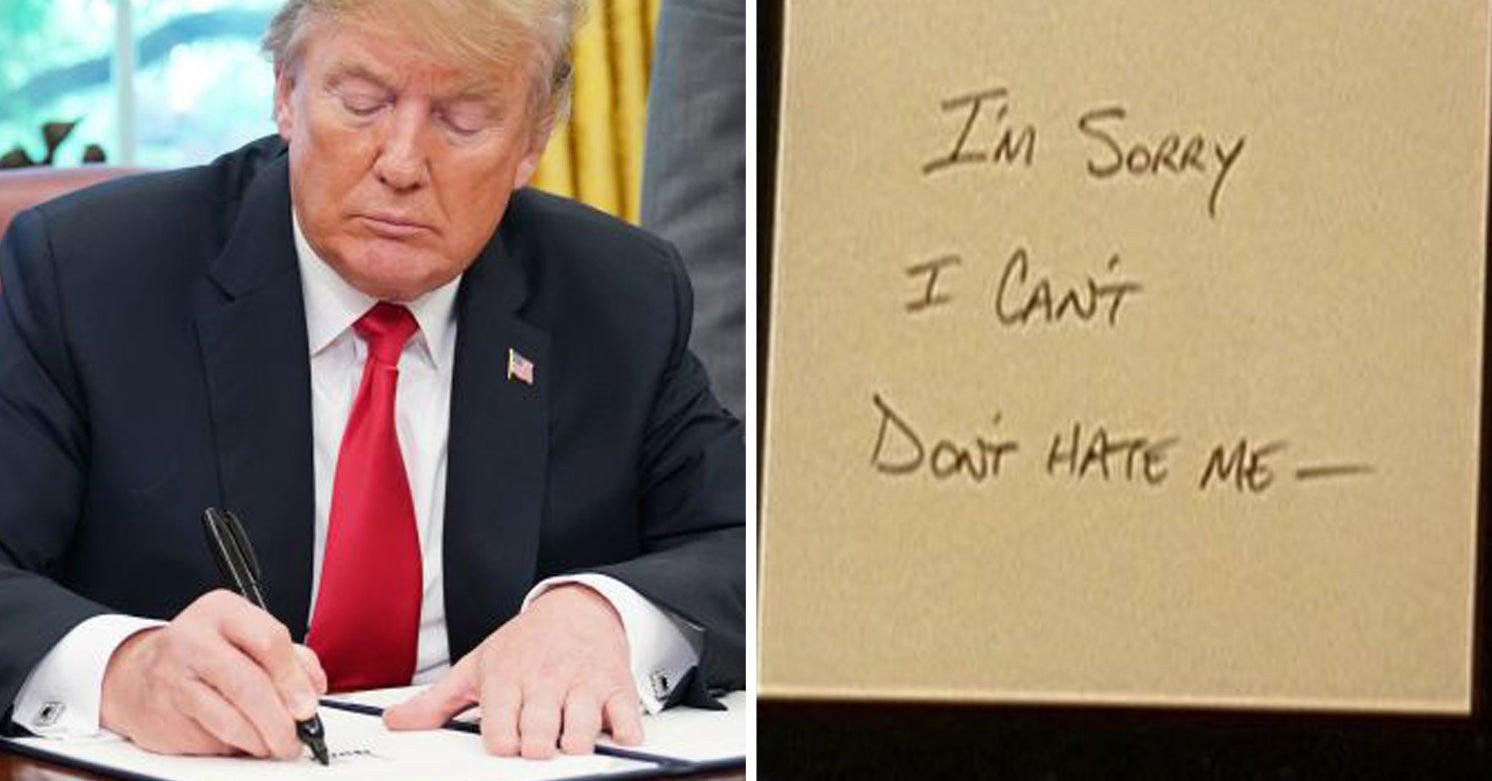 I'M SORRY
I CAN'T
DON'T HATE ME —